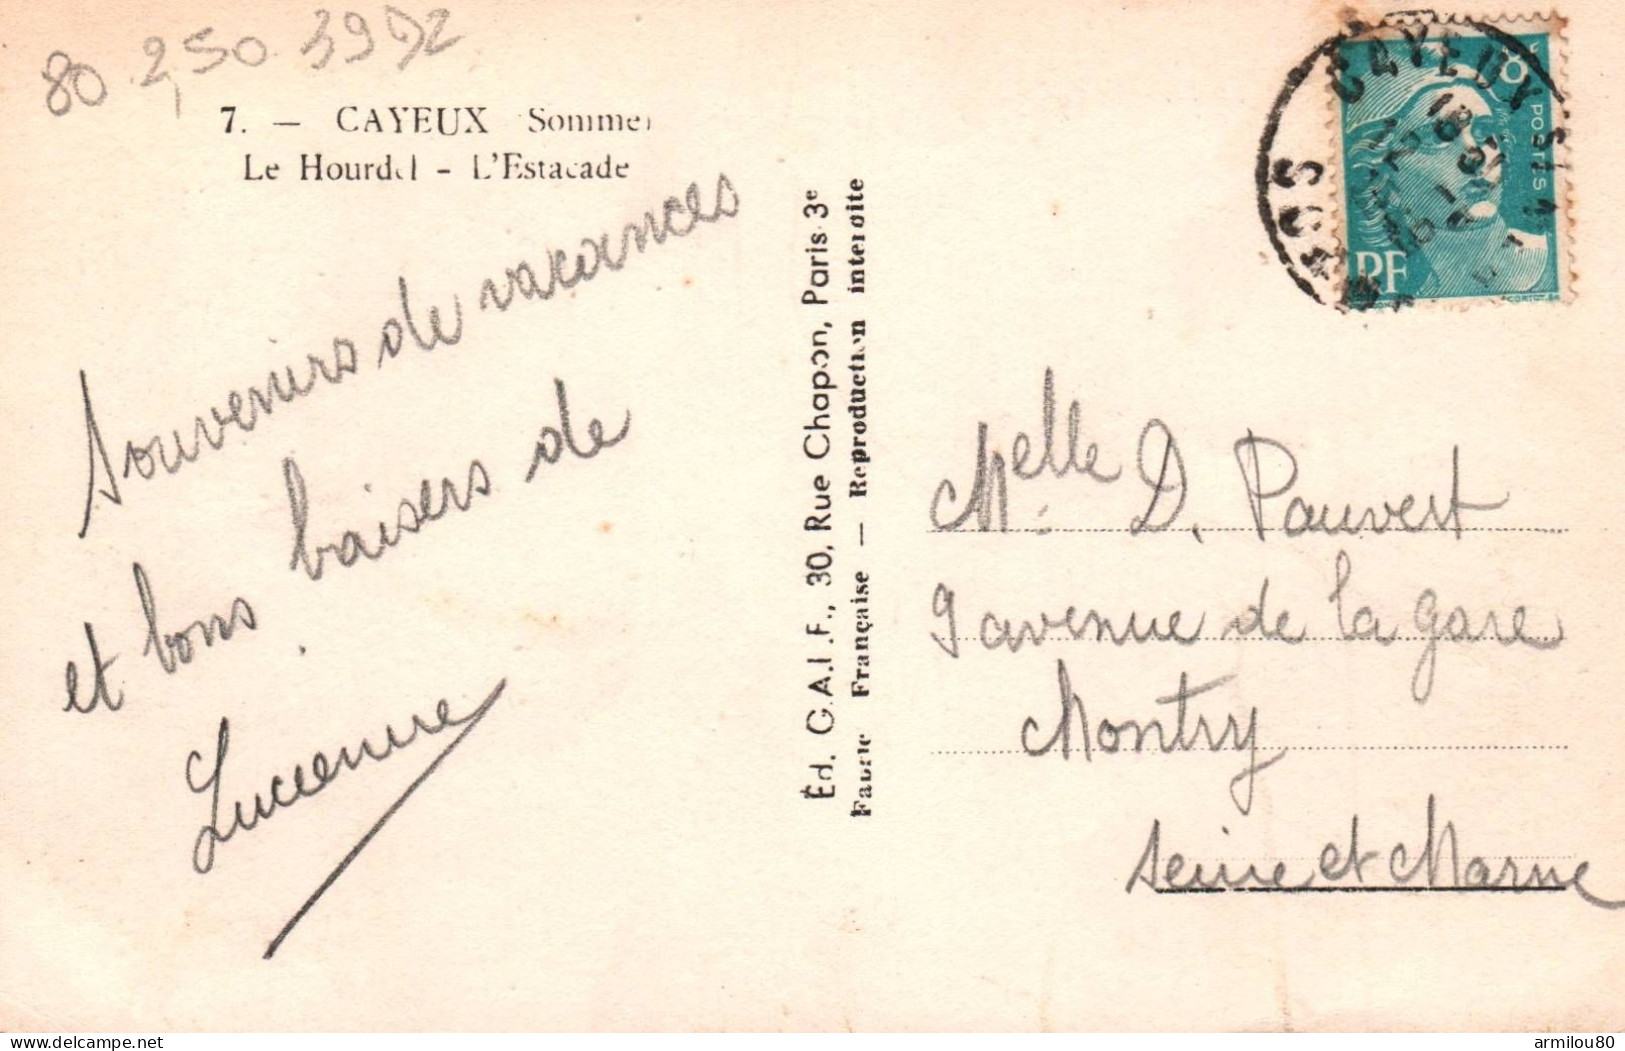 80 2,50 39D2
7. — CAYEUX (Somme)
Le Hourdel - L'Estacade
Souvenirs de vacances
et bons baisers de
Lucienne
Éd. G.A.I.F., 30, Rue Chapon, Paris-3e
Fabric Française — Reproduction interdite
CAYEUX
8F
POSTES
PF
Melle D. Pauvert
9 avenue de la gare
Montry
Seine et Marne
armilou80